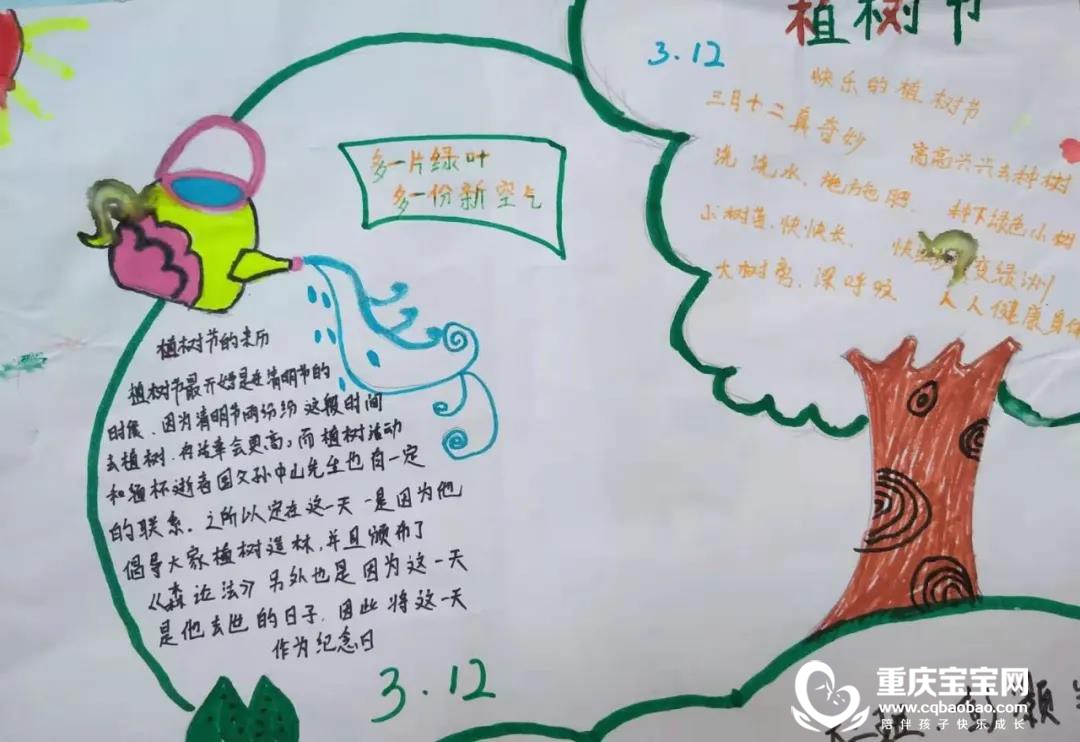 植树节
3.12
快乐的植树节
三月十二真奇妙 高高兴兴去种树
浇浇水、施施肥. 种下绿色小树
小树苗、快快长、 变绿洲
大树离、深呼吸 人人健康身体
多一片绿叶
多一份新空气
植树节的来历
植树节最开始是在清明节的
时候、因为清明节雨纷纷这段时间
去植树.存活率会更高。而植树活动
和缅怀逝者国父孙中山先生也有一定
的联系。之所以定在这一天一是因为他
倡导大家植树造林,并且颁布了
《森 法》另外也是因为这一天
是他去世的日子.因此将这一天
作为纪念日
3.12
重庆宝宝网
www.cqbaobao.com
陪伴孩子快乐成长
颖